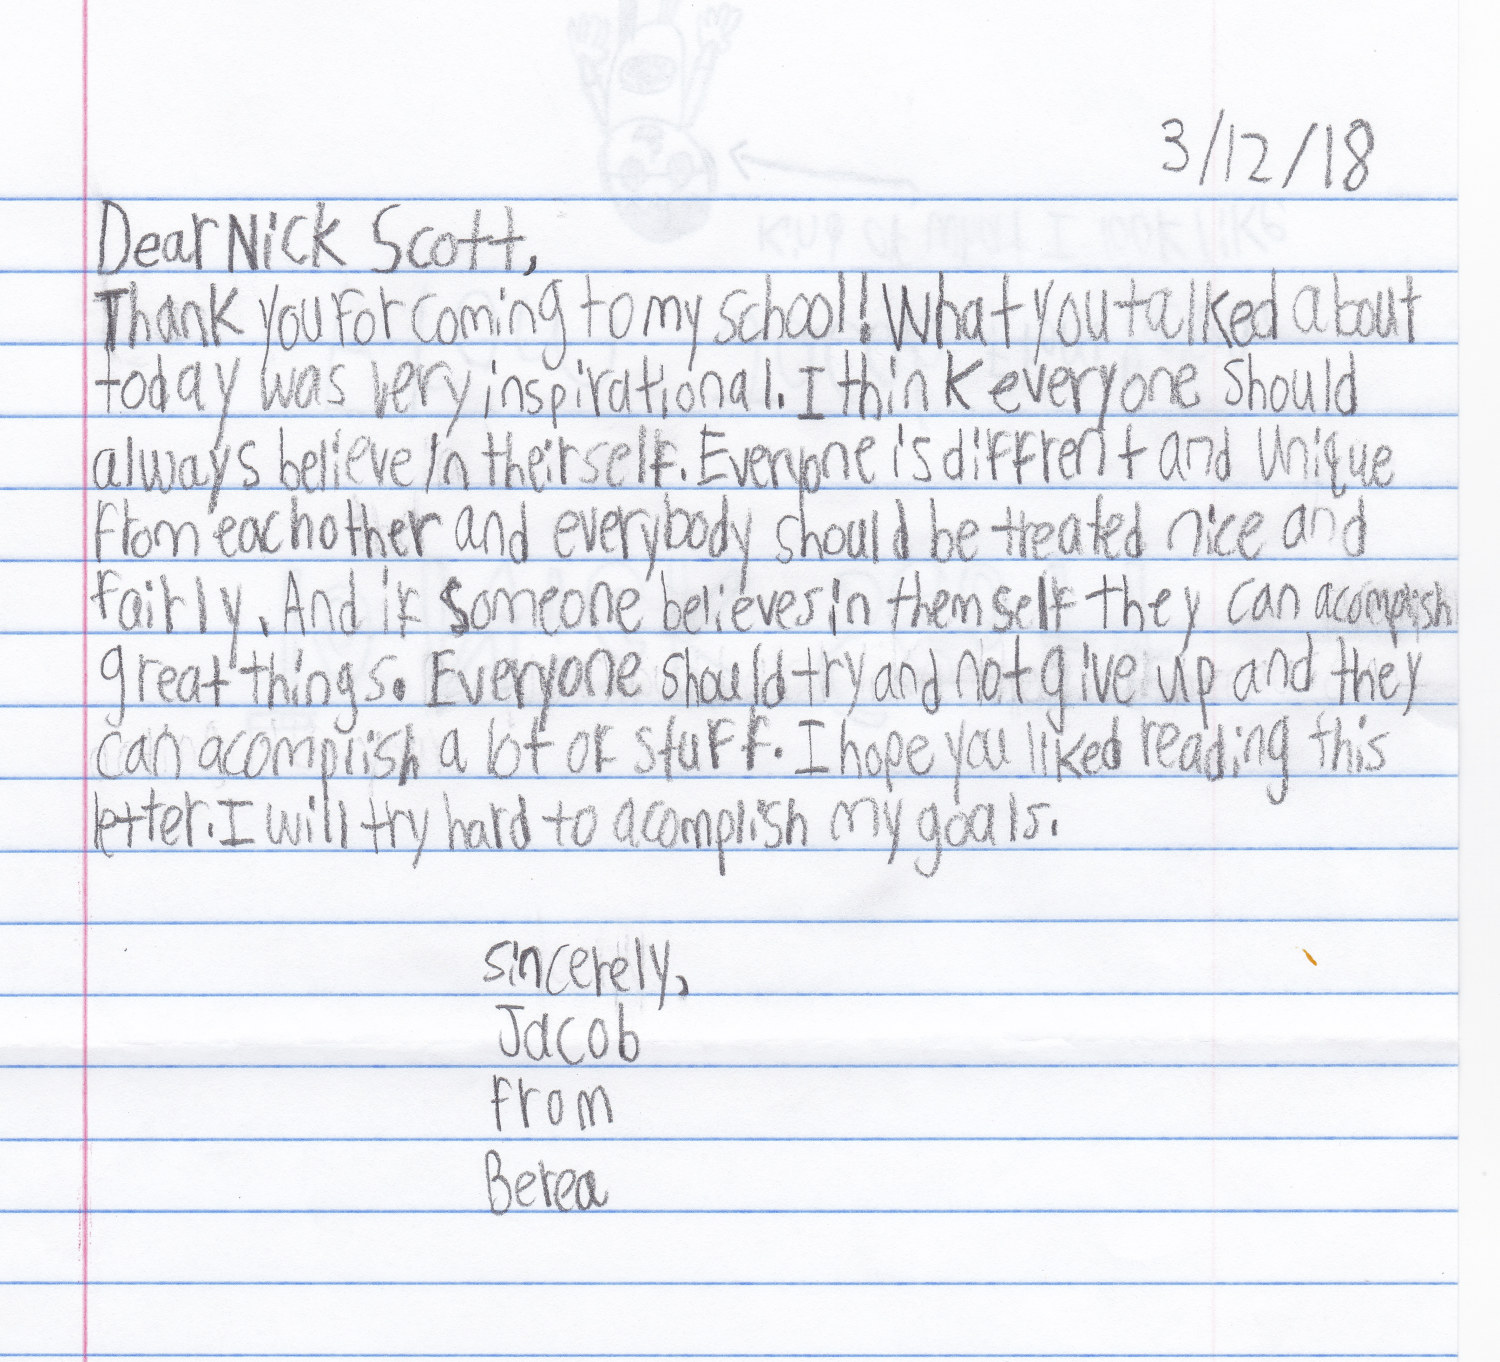 3/12/18
Dear Nick Scott,
Thank you for coming to my school! What you talked about
today was very inspirational. I think everyone should
always believe in theirself. Everyone is diffrent and unique
from eachother and everybody should be treated nice and
fairly. And if someone believes in themself they can acomplish
great things. Everyone should try and not give up and they
can acomplish a lot of stuff. I hope you liked reading this
letter. I will try hard to acomplish my goals.
sincerely,
Jacob
from
Berea